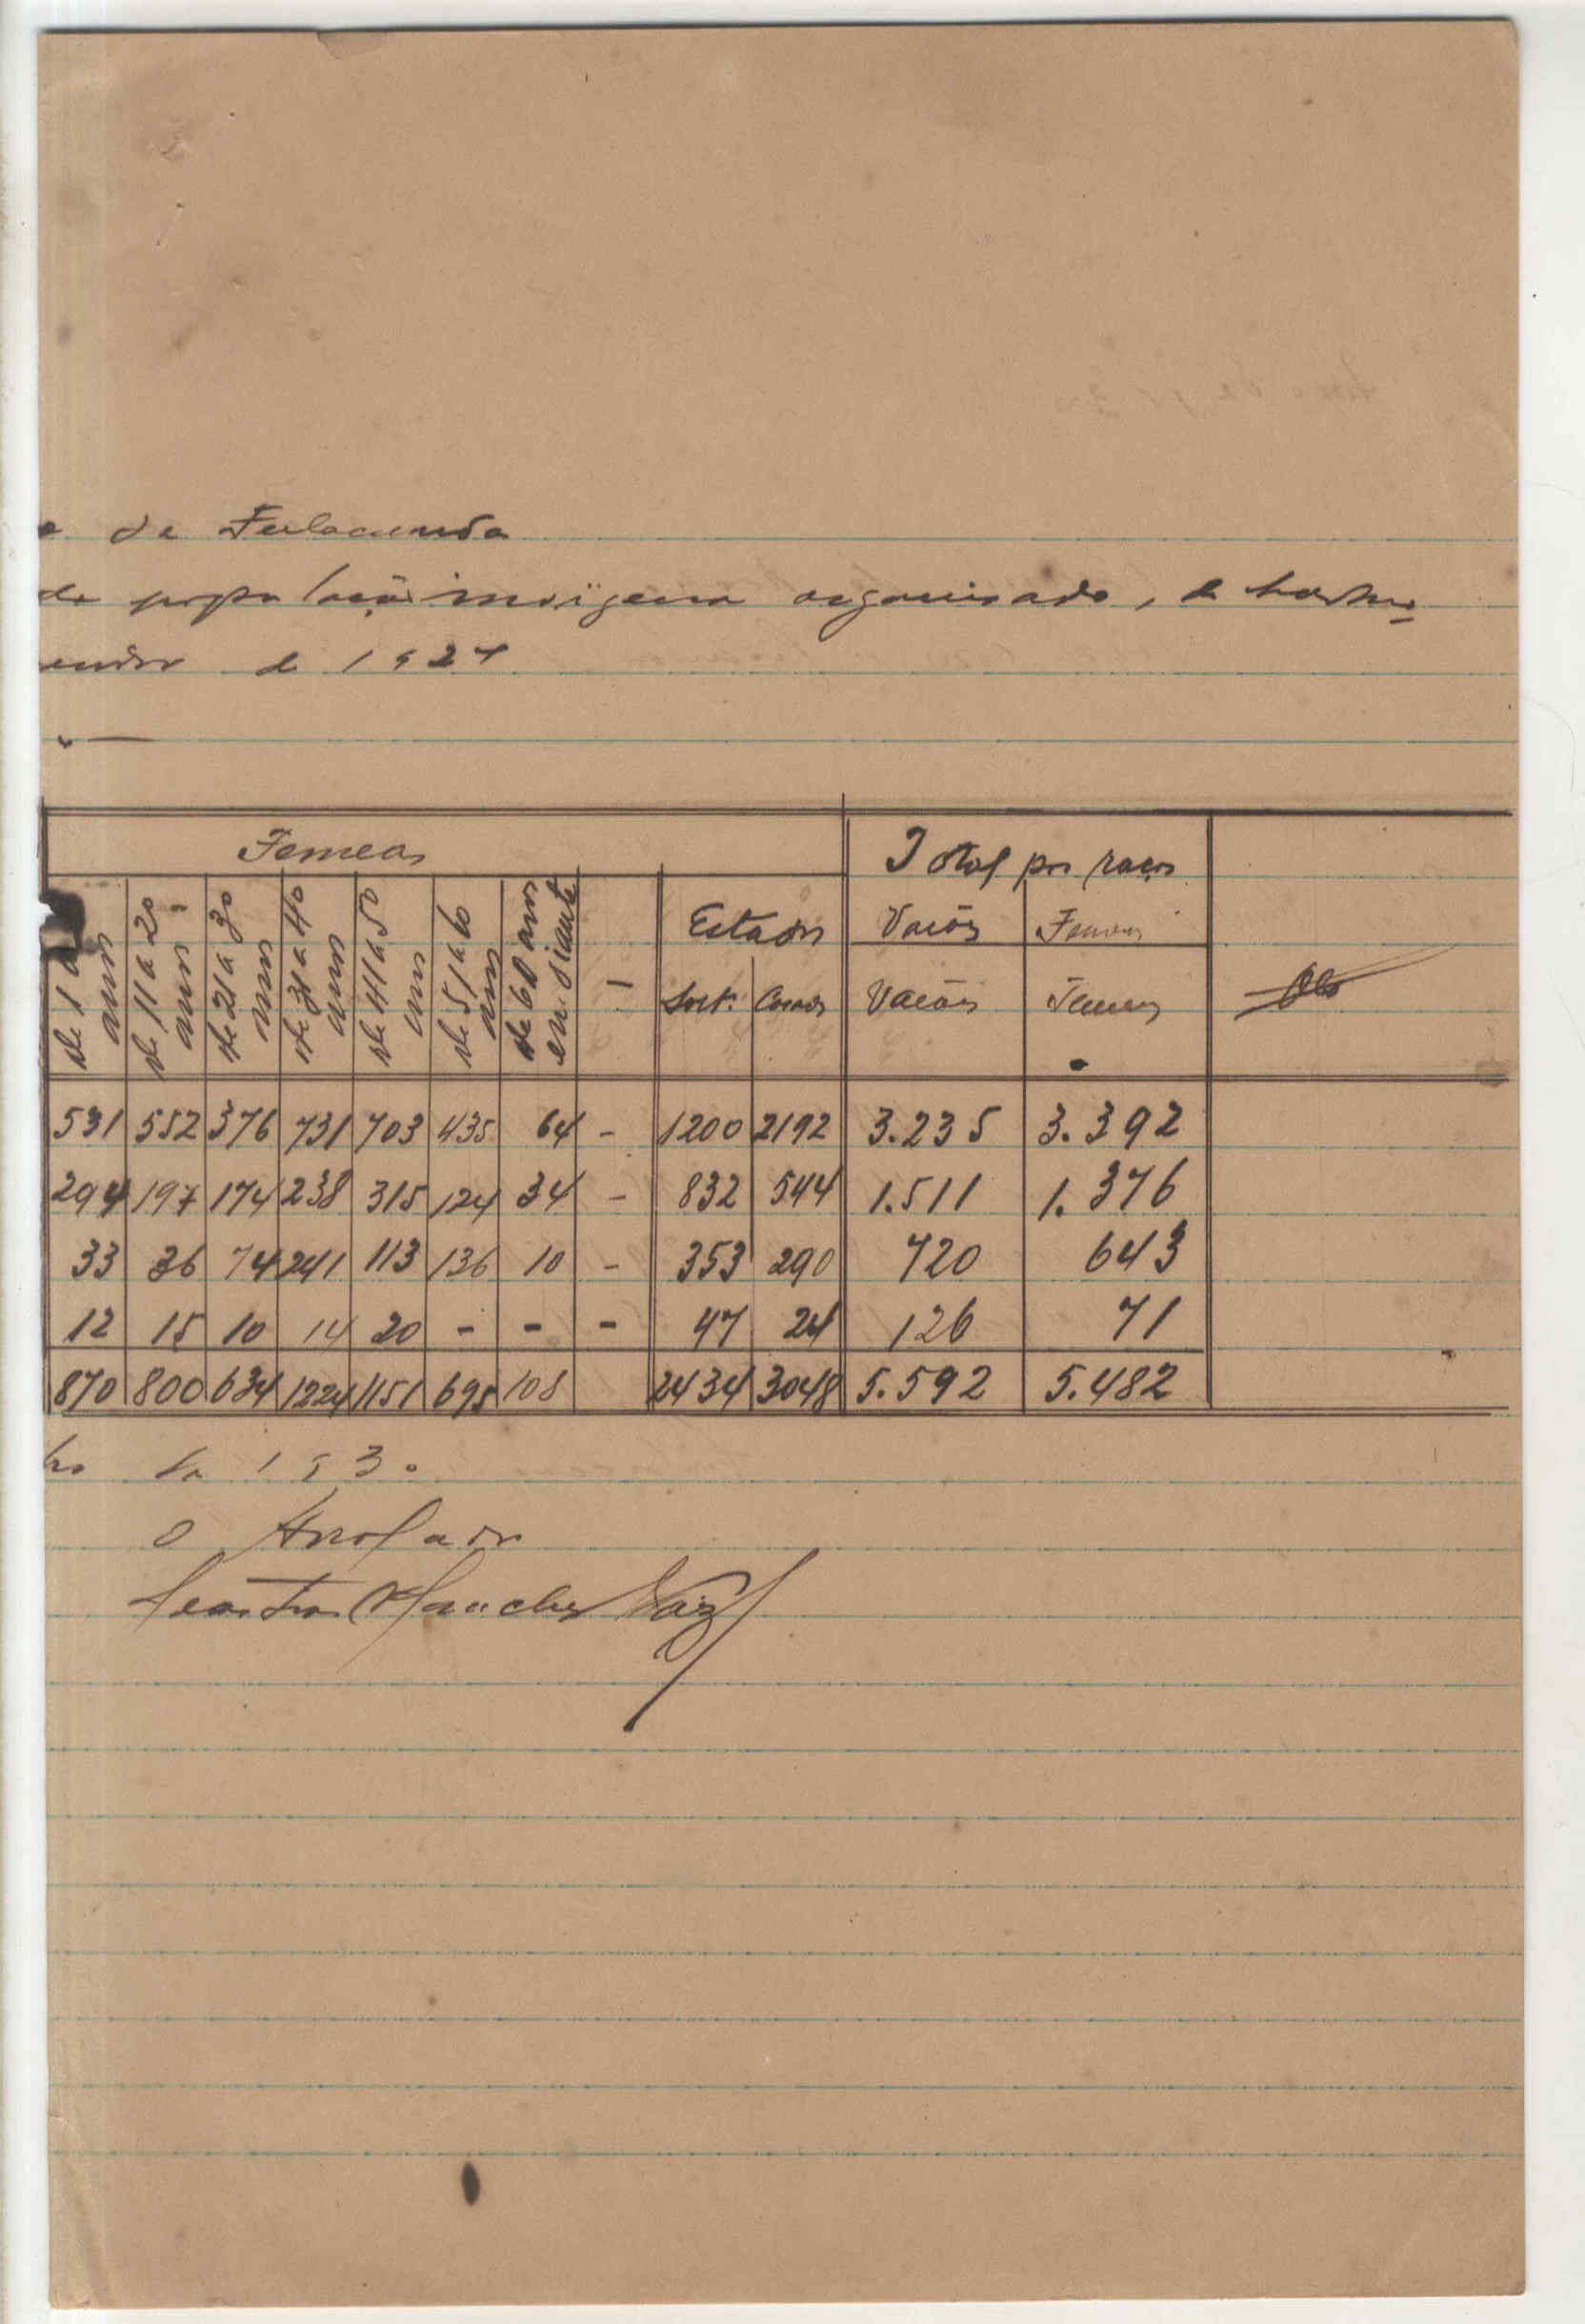 de Fulacunda
de população indigena organisado, de harmo
de 1927
Femeas
Total por raças
de 1 a anos
de 11 a 20 anos
de 21 a 30 anos
de 31 a 40 anos
de 41 a 50 anos
de 51 a 60 anos
de 60 anos em diante
-
Estados
Solt. Casados
Varões Femeas
Varões Femeas
Obs
531 552 376 731 703 435 64 - 1200 2192 3.235 3.392
294 197 174 238 315 124 34 - 832 544 1.511 1.376
33 36 74 241 113 136 10 - 353 290 720 643
12 15 10 14 20 - - - 47 24 126 71
870 800 634 1224 1151 695 108 2434 3048 5.592 5.482
de 1930
O Arrolador
Sanches Vaz